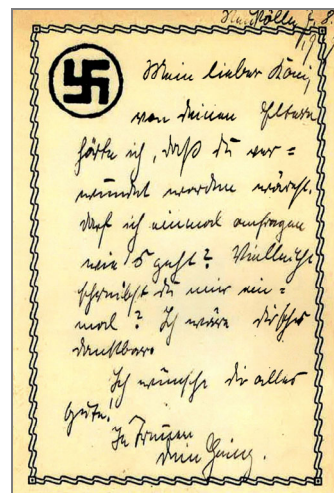 Neukölln
Mein lieber König
von deinen Eltern
hörte ich, daß du ver=
wundet worden wärest.
darf ich einmal anfragen
wie's geht? Vielleicht
schreibst du mir ein=
mal? Ich wäre dir sehr
dankbar.
Ich wünsche dir alles
gute!
In Treuen
dein Heinz.